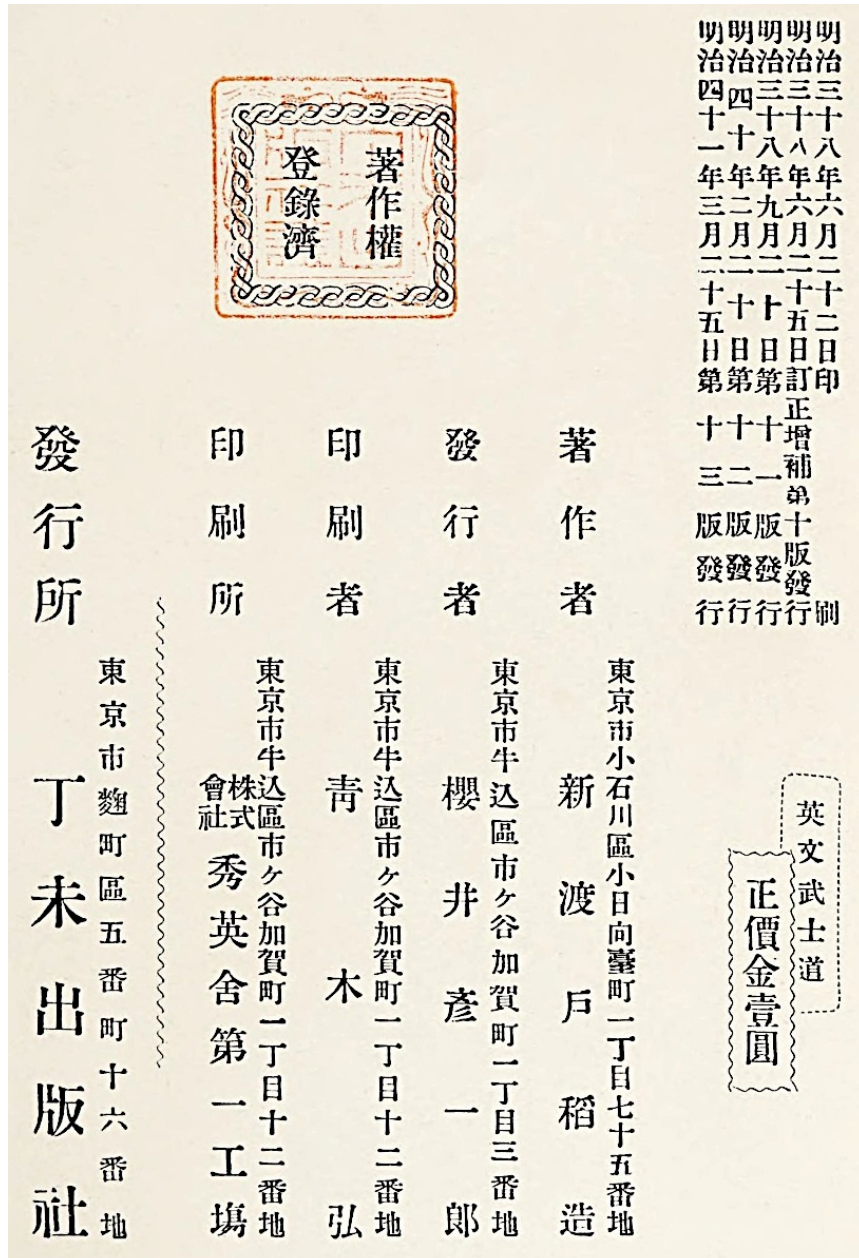 明治三十八年六月二十二日印刷
明治三十八年六月二十五日訂正增補第十版發行
明治三十八年九月二十日第十一版發行
明治四十年二月二十日第十二版發行
明治四十一年三月二十五日第十三版發行
英文武士道
正價金壹圓
著作權
登錄濟
著作者
東京市小石川區小日向臺町一丁目七十五番地
新渡戶稻造
發行者
東京市牛込區市ケ谷加賀町一丁目三番地
櫻井彥一郎
印刷者
東京市牛込區市ケ谷加賀町一丁目十二番地
靑木弘
印刷所
東京市牛込區市ケ谷加賀町一丁目十二番地
株式會社秀英舍第一工塲
發行所
東京市麴町區五番町十六番地
丁未出版社